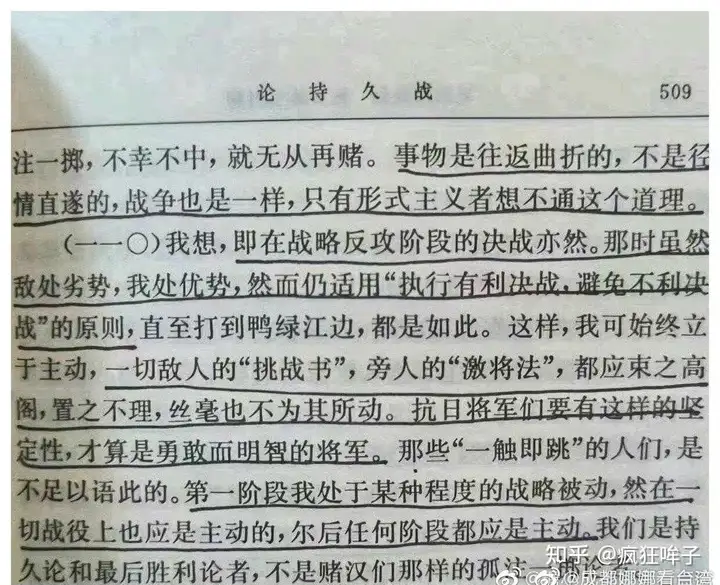 论持久战 509
注一掷，不幸不中，就无从再赌。事物是往返曲折的，不是径
情直遂的，战争也是一样，只有形式主义者想不通这个道理。
（一一〇）我想，即在战略反攻阶段的决战亦然。那时虽然
敌处劣势，我处优势，然而仍适用“执行有利决战，避免不利决
战”的原则，直至打到鸭绿江边，都是如此。这样，我可始终立
于主动，一切敌人的“挑战书”，旁人的“激将法”，都应束之高
阁，置之不理，丝毫也不为其所动。抗日将军们要有这样的坚
定性，才算是勇敢而明智的将军。那些“一触即跳”的人们，是
不足以语此的。第一阶段我处于某种程度的战略被动，然在一
切战役上也应是主动的，尔后任何阶段都应是主动。我们是持
久论和最后胜利论者，不是赌汉们那样的孤注
知乎 @疯狂哞子
@成都娜娜看台湾